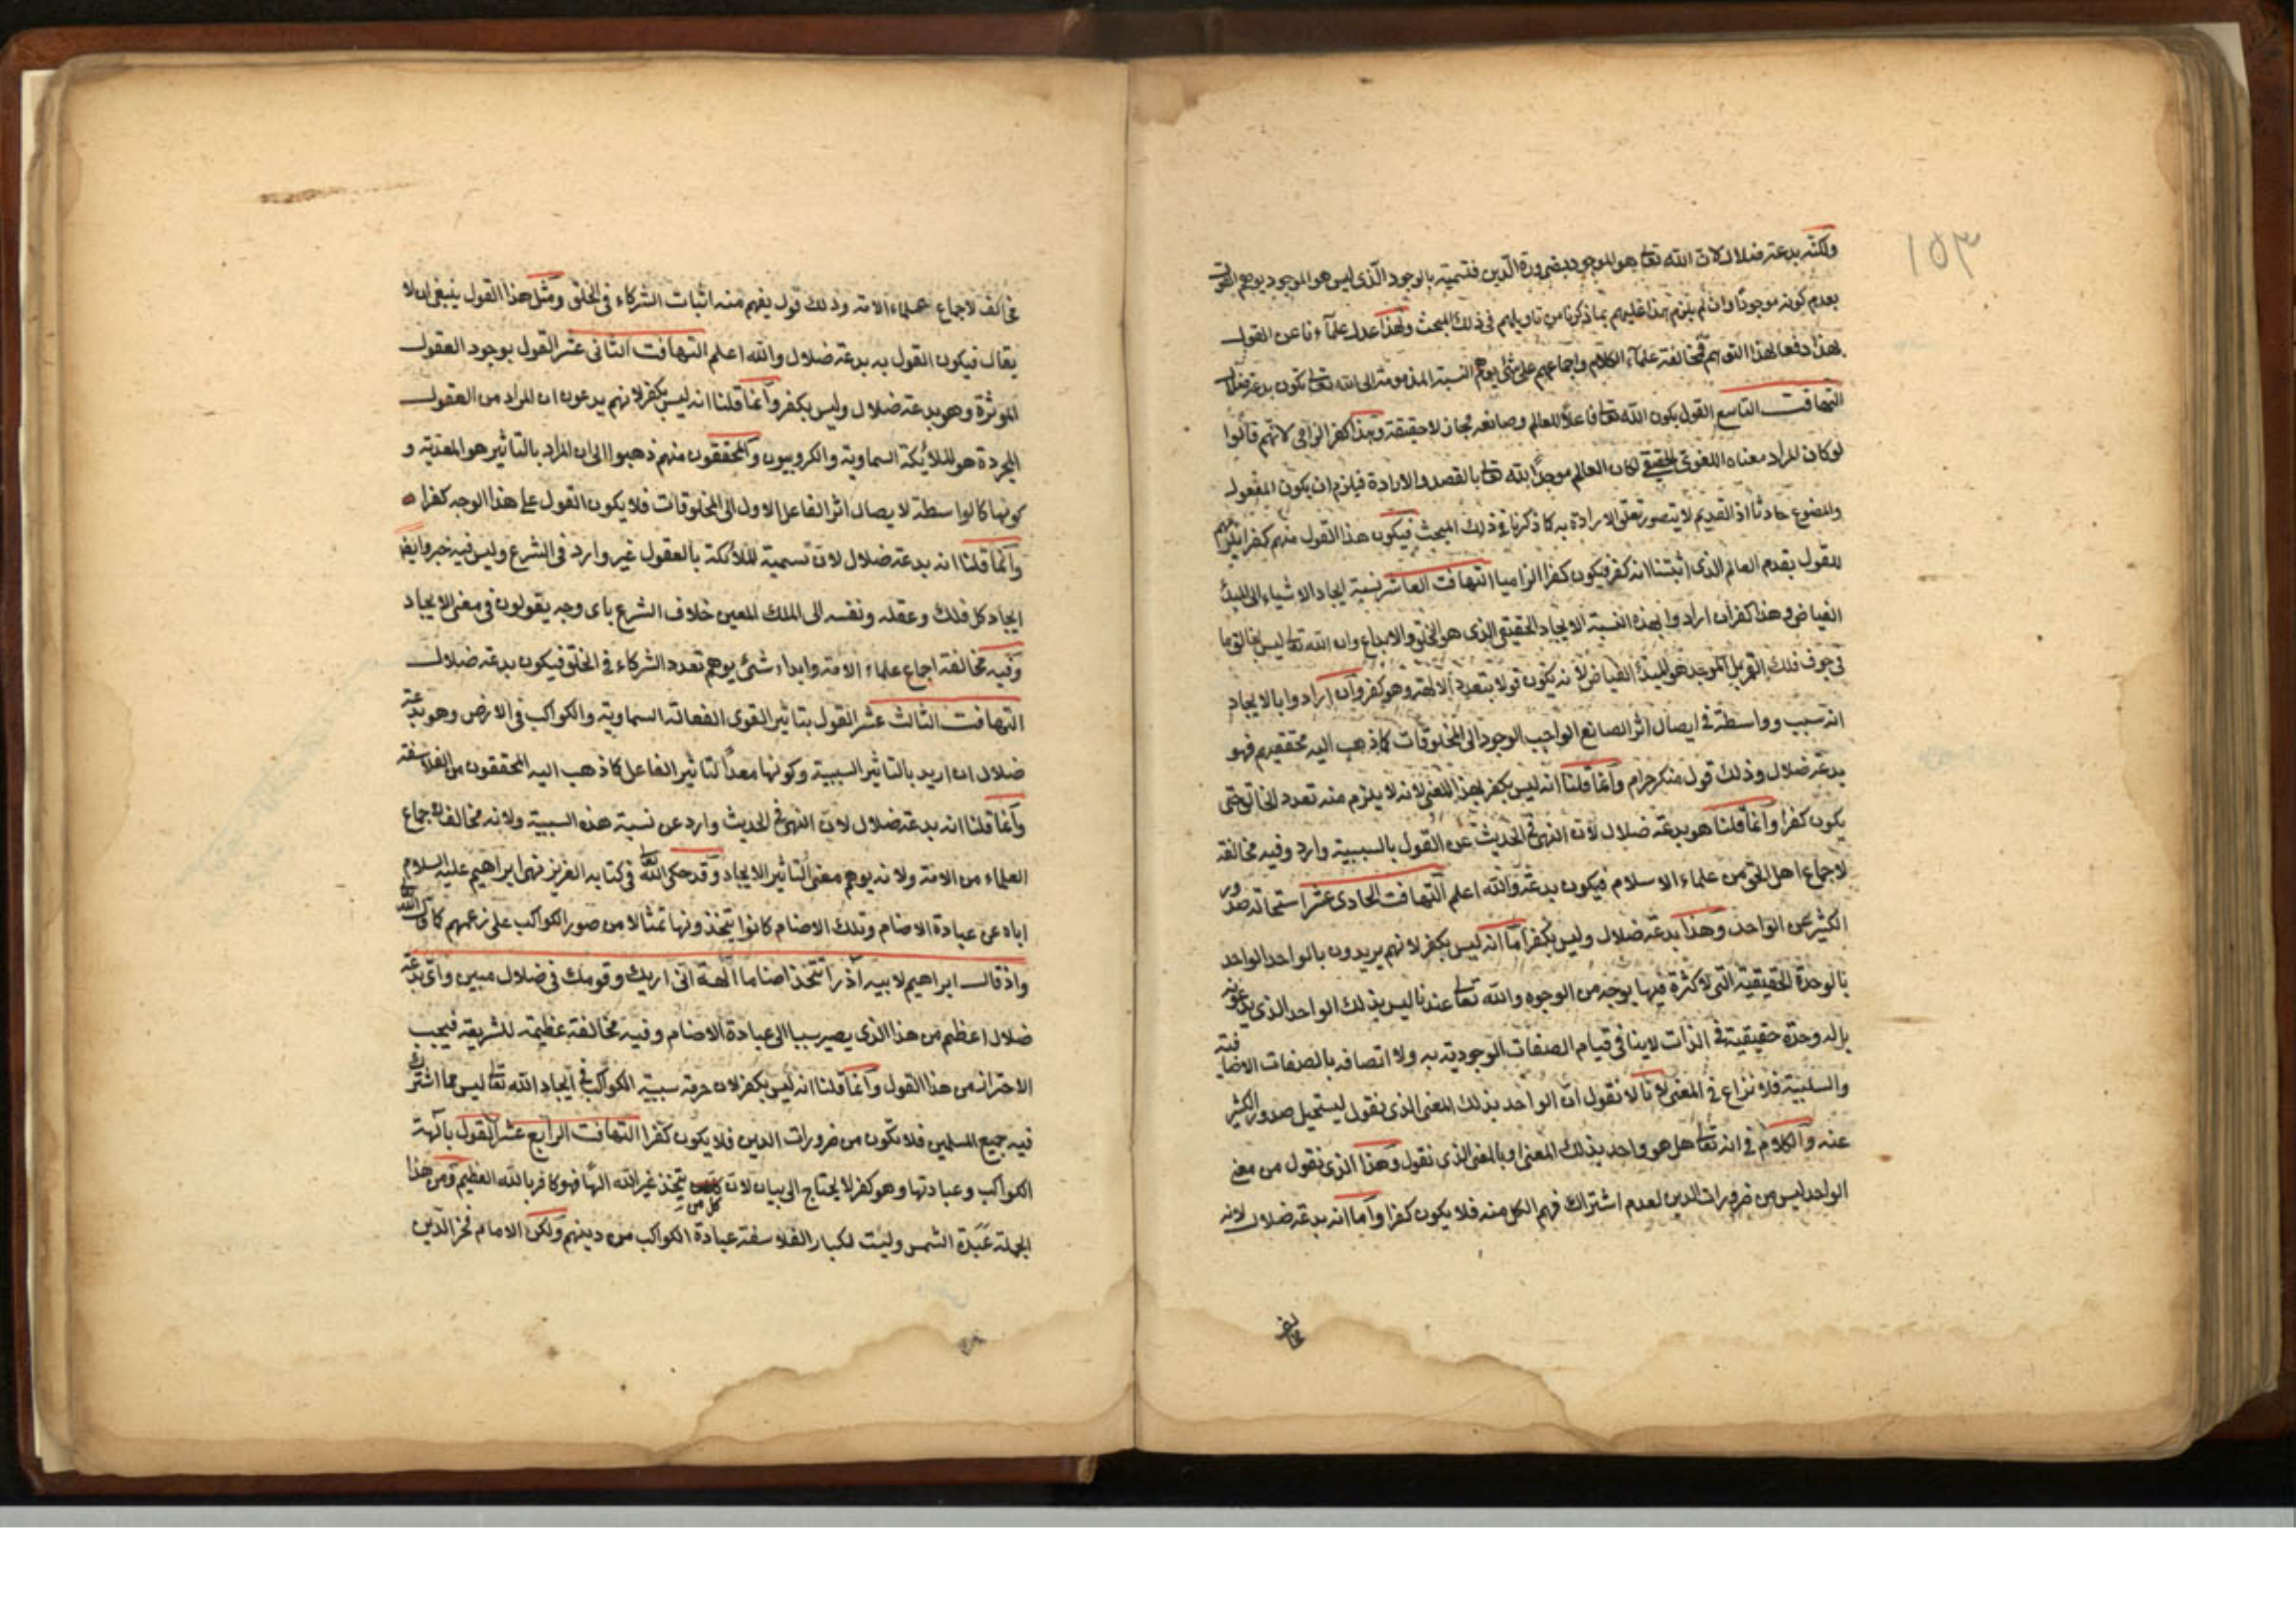 ١٥٣
ولكنه بدعة ضلال لان الله تعا هو الموجود بضرورة الدين فتسميته بالوجود الذى ليس هو الموجود يوهم القول
بعدم كونه موجودًا وان لم يلزم هذا عليهم بما ذكرنا من تاويلهم فى ذلك المبحث ولهذا عدل علمآءنا عن القول
بهذا دفعا لهذا التوهم فمخالفة علمآء الكلام واجماعهم على شئ يوهم النسبة المذمومة الى الله تعا تكون بدعة ضلال
التهافت التاسع القول بكون الله تعا فاعلًا للعالم وصانعه مجاز لا حقيقة وهذا كفر الزامى لانهم قالوا
لو كان المراد معناه اللغوى الحقيقى لكان العالم موجدًا بالله تعا بالقصد والارادة فيلزم ان يكون المفعول
والمصنوع حادثا اذ القديم لا يتصور تعلق الارادة به كما ذكرنا فى ذلك المبحث فيكون هذا القول منهم كفرا
للقول بقدم العالم الذى اثبتنا انه كفر فيكون كفرا الزاميا التهافت العاشر نسبة ايجاد الاشياء الى المبدأ
الفياض وهذا كفر ان ارادوا بهذه النسبة الايجاد الحقيقى الذى هو الخلق والابداع وان الله تعا ليس بخالق ما
فى جوف فلك القمر بل الموجد هو المبدأ الفياض لانه يكون قولا بتعدد الالهة وهو كفر وان ارادوا بالايجاد
انه سبب وواسطة فى ايصال اثر الصانع الواجب الوجود الى المخلوقات كما ذهب اليه محققيهم فهو
بدعة ضلال وذلك قول منكر حرام وانما قلنا انه ليس بكفر بهذا المعنى لانه لا يلزم منه تعدد الخالق حتى
يكون كفرا وانما قلنا هو بدعة ضلال لان النهى فى الحديث عن القول بالسببية وارد وفيه مخالفة
لاجماع اهل الحق من علماء الاسلام فيكون بدعة والله اعلم التهافت الحادى عشر استحالة صدور
الكثير عن الواحد وهذا بدعة ضلال وليس بكفر اما انه ليس بكفر لانهم يريدون بالواحد الواحد
بالوحدة الحقيقية التى لا كثرة فيها بوجه من الوجوه والله تعا عندنا ليس بذلك الواحد الذى يدعونه
بل له وحدة حقيقية فى الذات لا ينافى قيام الصفات الوجودية به ولا اتصافه بالصفات الاضافية
والسلبية فلا نزاع فى المعنى لانا لا نقول ان الواحد بذلك المعنى الذى نقول ليستحيل صدور الكثير
عنه والكلام فى انه تعا هل هو واحد بذلك المعنى او بالمعنى الذى نقول وهذا الذى نقول من معنى
الواحد ليس من ضرورات الدين لعدم اشتراك فهم الكل منه فلا يكون كفرا واما انه بدعة ضلال لانه
مخالف لاجماع علماء الامة وذلك قول يفهم منه اثبات الشركاء فى الخلق ومثل هذا القول ينبغى ان لا
يقال فيكون القول به بدعة ضلال والله اعلم التهافت الثانى عشر القول بوجود العقول
الموثرة وهو بدعة ضلال وليس بكفر وانما قلنا انه ليس بكفر لانهم يدعون ان المراد من العقول
المجردة هو الملائكة السماوية والكروبيون والمحققون منهم ذهبوا الى ان المراد بالتاثير هو المعدية و
كونها كالواسطة لايصال اثر الفاعل الاول الى المخلوقات فلا يكون القول على هذا الوجه كفرا
وانما قلنا انه بدعة ضلال لان تسمية الملائكة بالعقول غير وارد فى الشرع وليس فيه خبر وايضا
ايجاد كل فلك وعقله ونفسه الى الملك المعين خلاف الشرع باى وجه يقولون فى معنى الايجاد
وفيه مخالفة اجماع علماء الامة وابداء شئ يوهم تعدد الشركاء فى الخلق فيكون بدعة ضلال
التهافت الثالث عشر القول بتاثير القوى الفعالة السماوية والكواكب فى الارض وهو بدعة
ضلال ان اريد بالتاثير السببية وكونها معداً لتاثير الفاعل كما ذهب اليه المحققون من الفلاسفة
وانما قلنا انه بدعة ضلال لان النهى فى الحديث وارد عن نسبة هذه السببية ولانه مخالف لاجماع
العلماء من الامة ولانه يوهم معنى التاثير الايجاد وقد حكى الله تعا فى كتابه العزيز نهى ابراهيم عليه السلام
اباه عن عبادة الاصنام وتلك الاصنام كانوا يتخذونها تمثالا من صور الكواكب على زعمهم كما قال الله تعا
واذ قال ابراهيم لابيه آذر اتتخذ اصناما آلهة انى اريك وقومك فى ضلال مبين واى بدعة
ضلال اعظم من هذا الذى يصير سببا الى عبادة الاصنام وفيه مخالفة عظيمة للشريعة فيجب
الاحتراز من هذا القول وانما قلنا انه ليس بكفر لان حرمة سببية الكواكب فى ايجاد الله تعا ليس مما اشترك
فيه جميع المسلمين فلا تكون من ضرورات الدين فلا يكون كفرا التهافت الرابع عشر القول بآلهة
الكواكب وعبادتها وهو كفر لا يحتاج الى بيان لان كل من يتخذ غير الله الهًا فهو كافر بالله العظيم ومن هذا
الجملة عَبَدة الشمس وليت لكبار الفلاسفة عبادة الكواكب من دينهم ولكن الامام فخر الدين